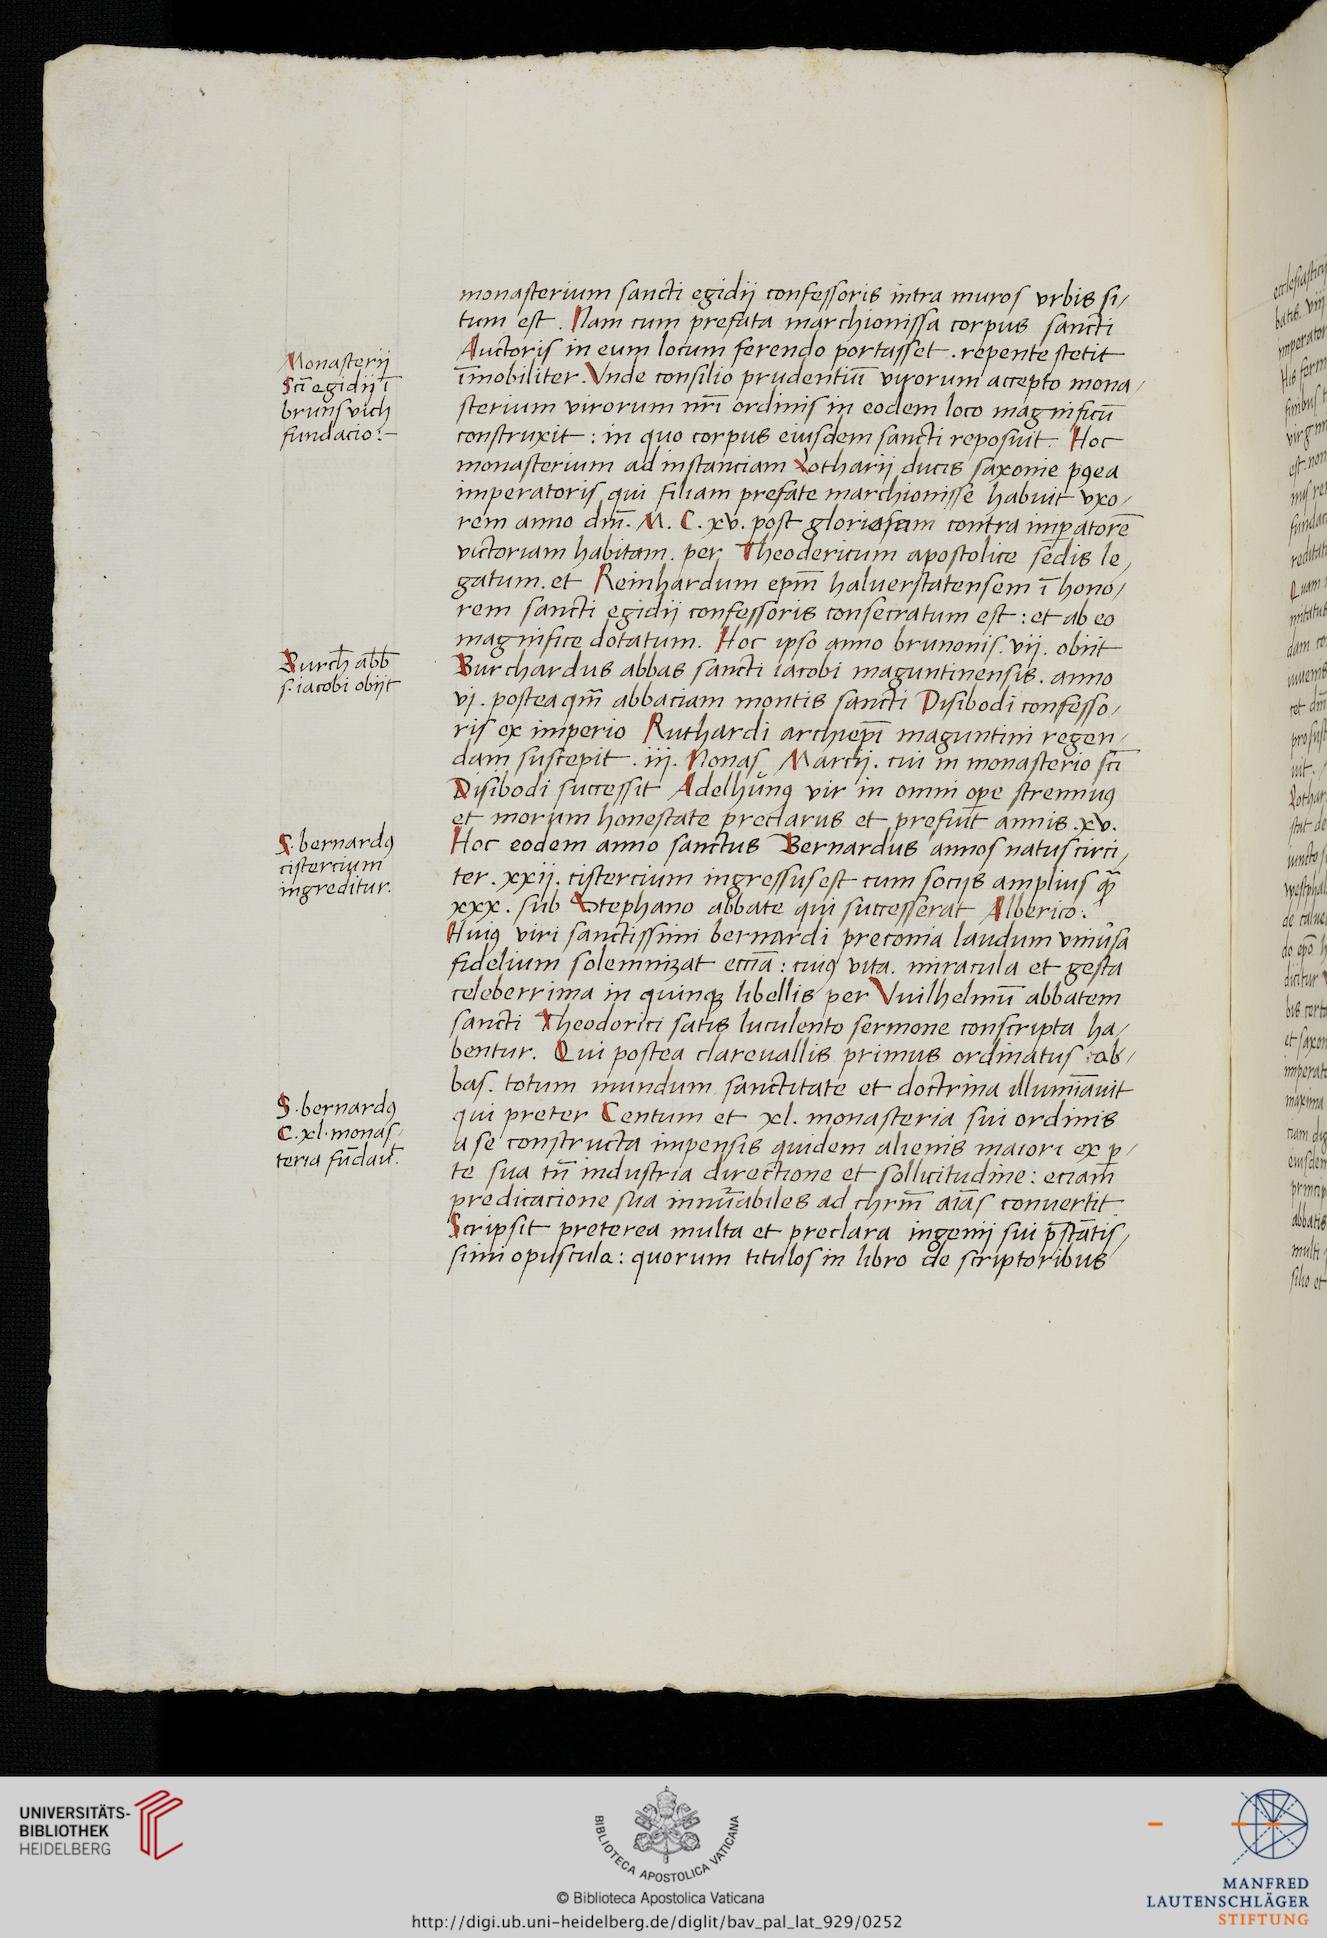 monasterium sancti egidij confessoris intra muros vrbis si/
tum est. Nam cum prefata marchionissa corpus sancti
Auctoris in eum locum ferendo portasset. repente stetit
īmobiliter. Vnde consilio prudentiū virorum accepto mona/
sterium virorum nr̄i ordinis in eodem loco magnificū
construxit: in quo corpus eiusdem sancti reposuit. Hoc
monasterium ad instanciam Lotharij ducis saxonie pꝯea
imperatoris qui filiam prefate marchionisse habuit vxo/
rem anno dm̄. M. C. xv. post gloriosam contra imꝑatorē
victoriam habitam. per Theodericum apostolice sedis le/
gatum. et Reinhardum epm̄ haluerstatensem ī hono/
rem sancti egidij confessoris consecratum est: et ab eo
magnifice dotatum. Hoc ipso anno brunonis. vij. obijt
Burchardus abbas sancti iacobi maguntinensis. anno
vj. posteaqm̄ abbaciam montis sancti Disibodi confesso/
ris ex imperio Ruthardi archiepī maguntini regen/
dam suscepit. iij. Nonas Marcij. cui in monasterio scī
Disibodi successit Adelhūnꝯ vir in omni oꝑe strennuꝯ
et morum honestate preclarus et prefuit annis. xv.
Hoc eodem anno sanctus Bernardus annos natus circi/
ter. xxij. cistercium ingressus est cum socijs amplius qꝫ̄
xxx. sub Stephano abbate qui successerat Alberico:
Huiꝯ viri sanctissimi bernardi preconia laudum vniūsa
fidelium solemnizat ecc̄ia: cuiꝯ vita. miracula et gesta
celeberrima in quinqꝫ libellis per Vuilhelmū abbatem
sancti Theodorici satis luculento sermone conscripta ha/
bentur. Qui postea clareuallis primus ordinatus ab/
bas. totum mundum sanctitate et doctrina illumīauit
qui preter Centum et xl. monasteria sui ordinis
a se constructa impensis quidem alienis maiori ex ꝑ/
te sua tn̄ industria directione et sollicitudine: eciam
predicacione sua innūabiles ad chrm̄ aīas conuertit
Scripsit preterea multa et preclara ingenij sui p̄stātis/
simi opuscula: quorum titulos in libro de scriptoribus
Monasterij
Scī egidij ī
brunsvich
fundacio:-
Burch̄ abb̄
s. iacobi obijt
S. bernardꝯ
cistercium
ingreditur.
S. bernardꝯ
C. xl. monas/
teria fūdauͭ.
UNIVERSITÄTS-
BIBLIOTHEK
HEIDELBERG
BIBLIOTECA APOSTOLICA VATICANA
© Biblioteca Apostolica Vaticana
http://digi.ub.uni-heidelberg.de/diglit/bav_pal_lat_929/0252
MANFRED
LAUTENSCHLÄGER
STIFTUNG